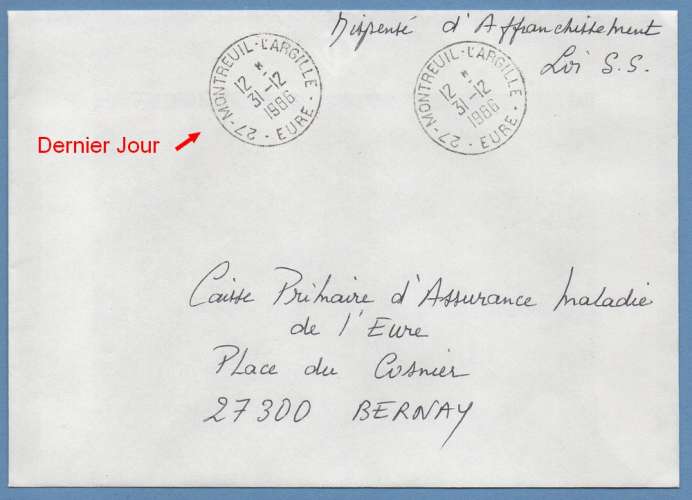 Dispensé d'Affranchissement
Loi S.S.
27-MONTREUIL-L'ARGILLE
12 H
31-12
1986
- EURE -
27-MONTREUIL-L'ARGILLE
12 H
31-12
1986
- EURE -
Dernier Jour
Caisse Primaire d'Assurance Maladie
de l'Eure
Place du Cosnier
27300 BERNAY